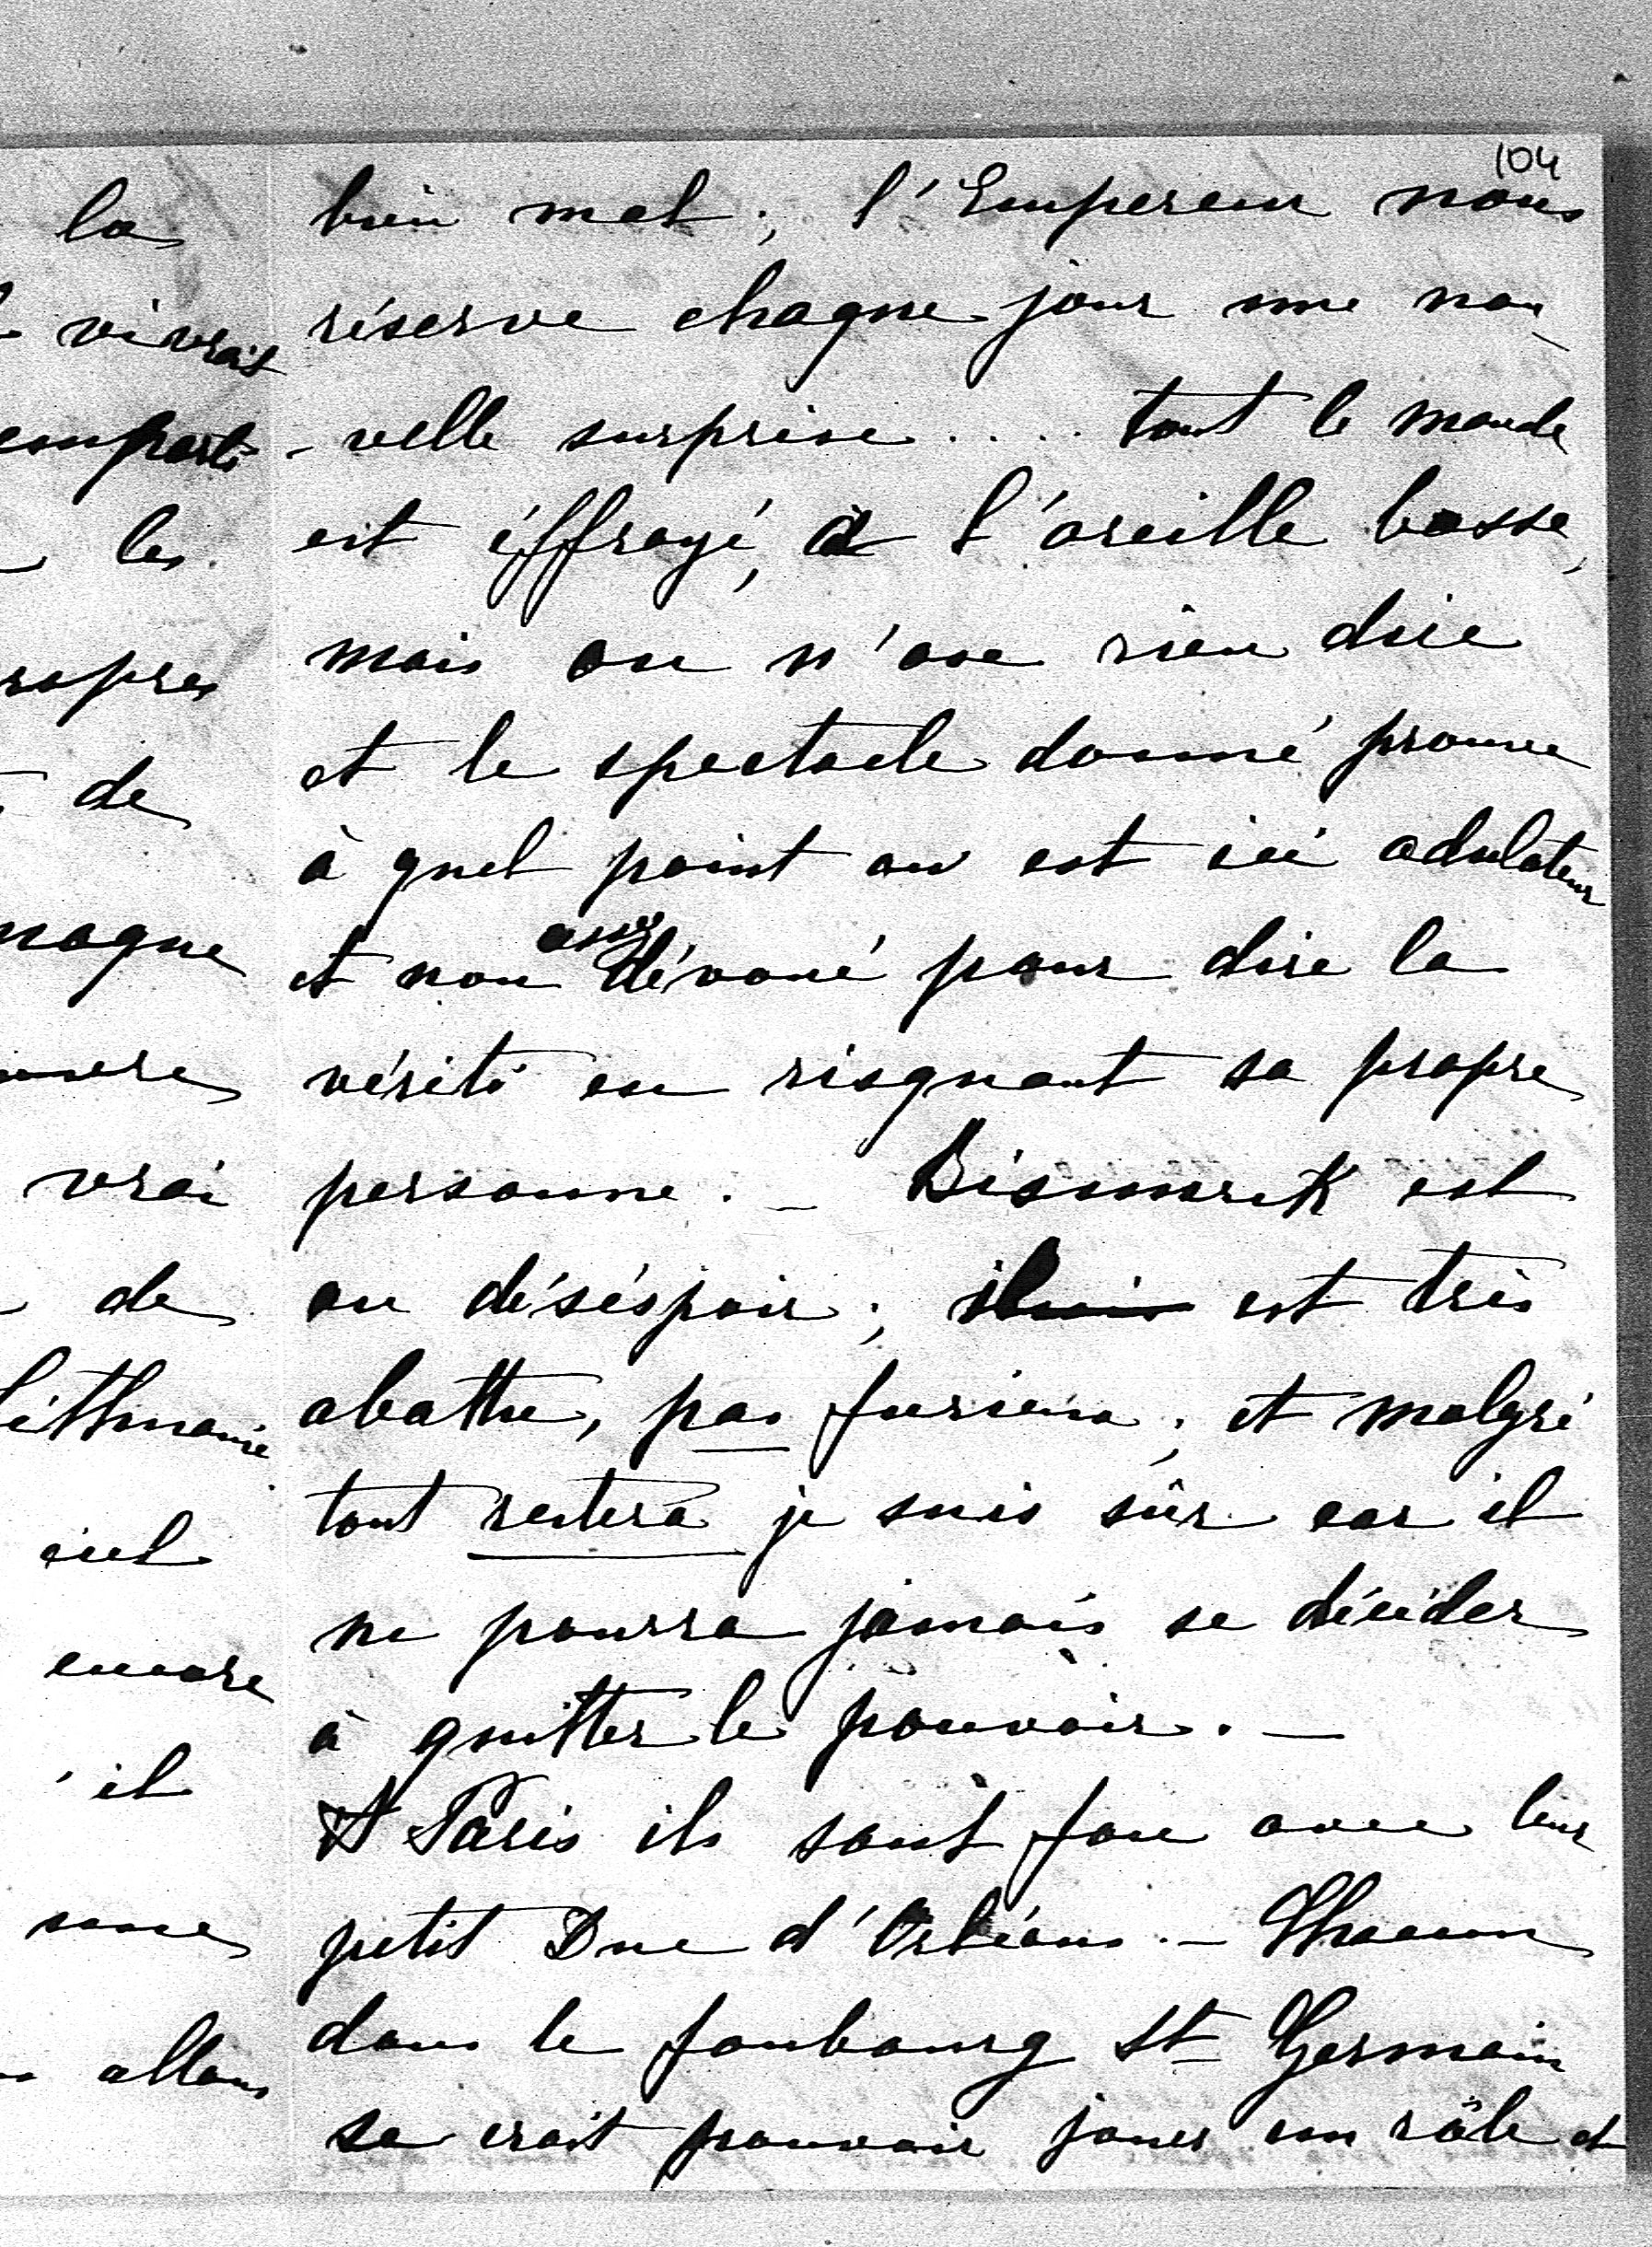 104
bien mal; l'Empereur nous
réserve chaque jour une nou-
-velle surprise.... tout le monde
est éffrayé, a l'oreille basse,
mais on n'ose rien dire
et le spectacle donné prouve
à quel point on est ici adulateur
et non assez dévoué pour dire la
vérité en risquant sa propre
personne. - Bismark est
au déséspoir; il est très
abattu, pas furieux; et malgré
tout restera je suis sûr car il
ne pourra jamais se décider
à quitter le pouvoir. -
A Paris ils sont fou avec leur
petit Duc d'Orléans. - Chacun
dans le faubourg St Germain
se croit pouvoir jouer un rôle et
la
vivrais
les
de
vrai
de
Lithuanie
ciel
encore
il
allons